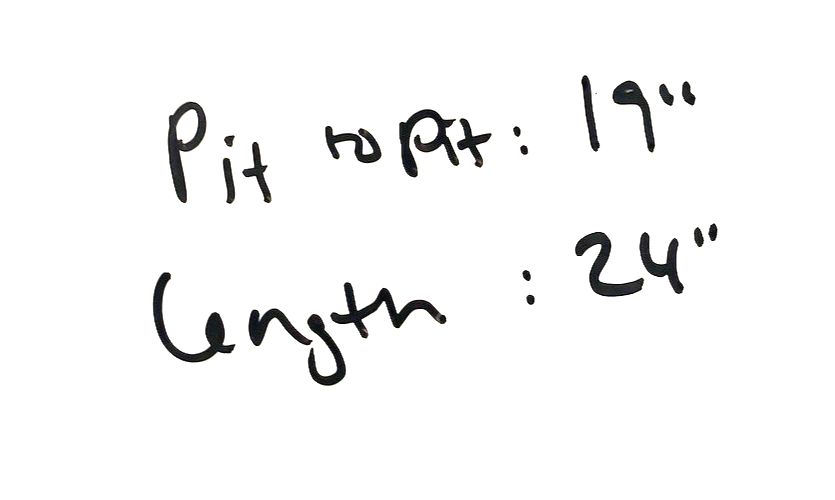 Pit to Pit: 19"
Length : 24"